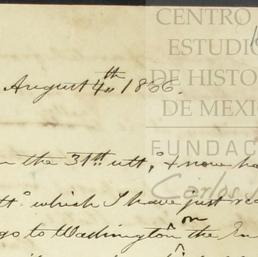 CENTRO
ESTUDIO
DE HISTO
DE MEXI
FUNDAC
Carlos
August 4th 1866.
the 31st ult,° & now ha
ult° which I have just re
go to Washington on the